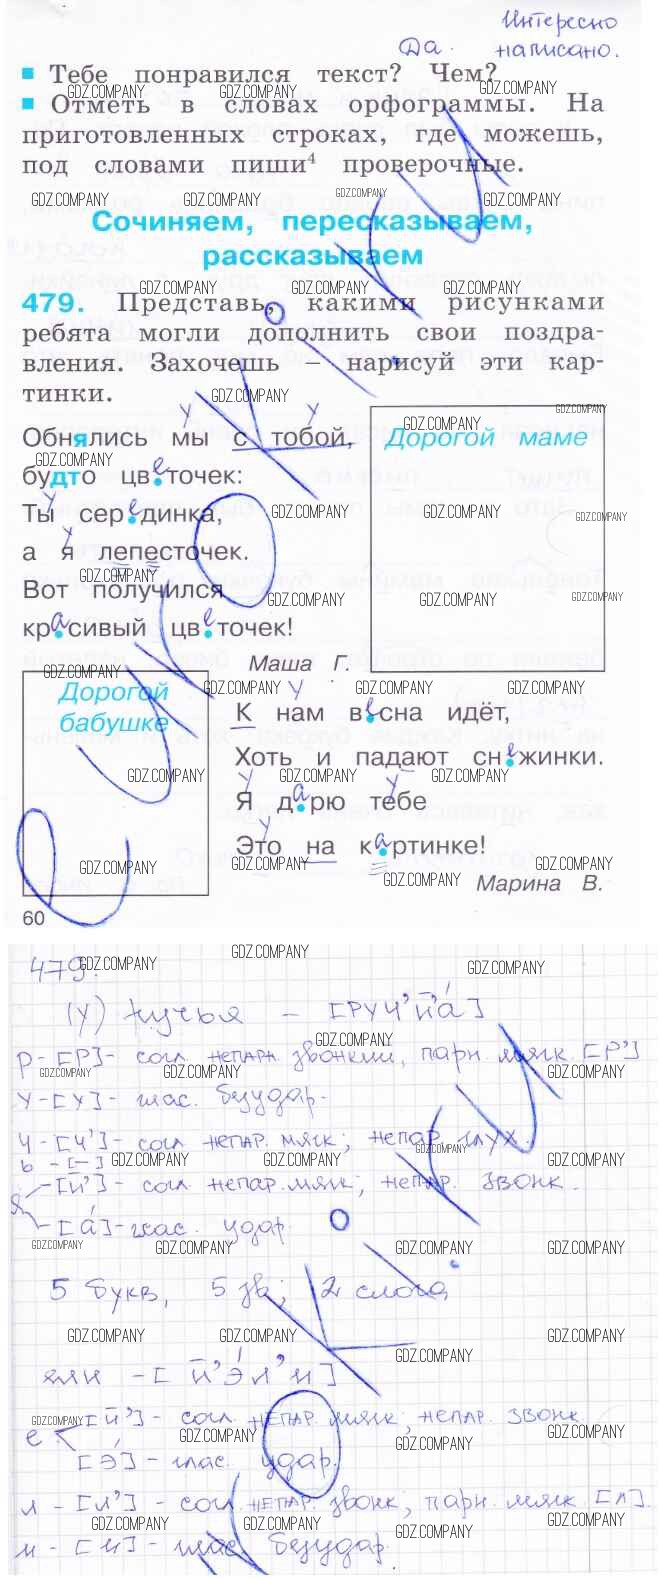 Интересно
Да. написано.
Тебе понравился текст? Чем?
Отметь в словах орфограммы. На
приготовленных строках, где можешь,
под словами пиши⁴ проверочные.
Сочиняем, пересказываем,
рассказываем
479. Представь, какими рисунками
ребята могли дополнить свои поздра-
вления. Захочешь – нарисуй эти кар-
тинки.
Обнялись мы с тобой,
будто цветочек:
Ты серединка,
а я лепесточек.
Вот получился
красивый цветочек!
Маша Г.
Дорогой маме
Дорогой
бабушке
К нам весна идёт,
Хоть и падают снежинки.
Я дарю тебе
Это на картинке!
Марина В.
60
479.
(У) ручья – [РУЧ'Й'А́]
Р - [Р] - согл. непарн. звонкий, парн. мягк. [Р']
У - [У] - глас. безудар.
Ч - [Ч'] - согл. непар. мягк; непар. глух.
Ь - [-]
Я - [Й'] - согл. непар. мягк; непар. звонк.
[А́] - глас. удар.
5 букв, 5 зв; 2 слога
ели - [Й'Э́Л'И]
е [Й'] - согл. непар. мягк; непар. звонк.
[Э́] - глас. удар.
л - [Л'] - согл. непар. звонк; парн. мягк. [Л].
и - [И] - глас. безудар.
GDZ.COMPANY
euroki.org